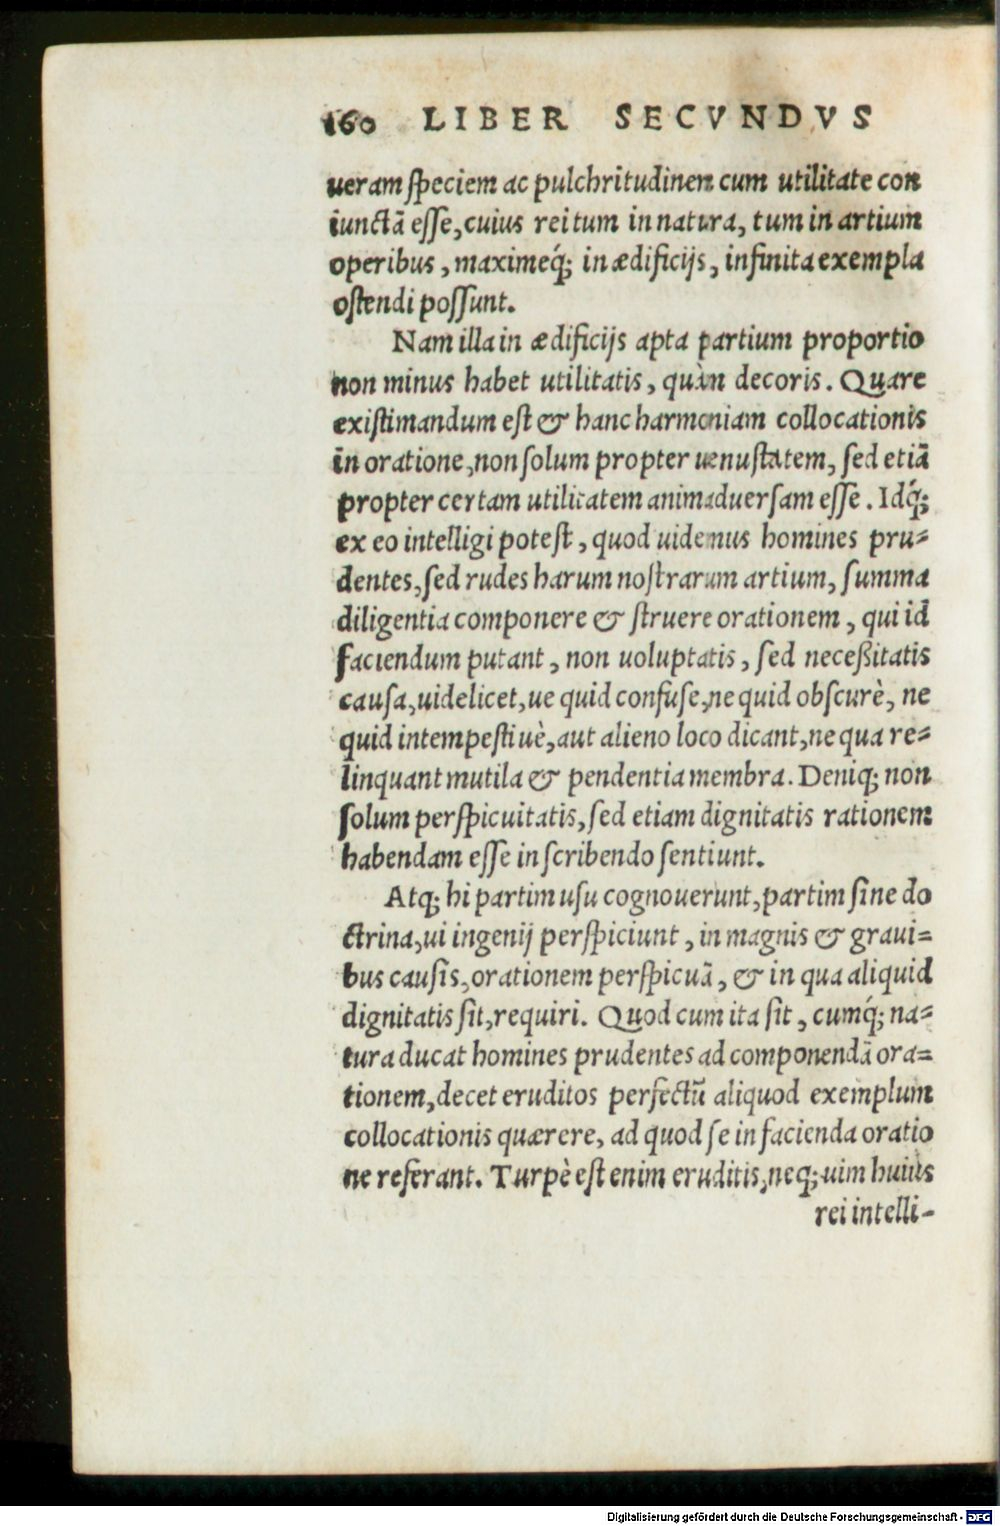 160 LIBER SECVNDVS
ueram ſpeciem ac pulchritudinem cum utilitate con
iunctã eſſe, cuius rei tum in natura, tum in artium
operibus, maximeq́; in ædificijs, infinita exempla
oſtendi poſſunt.
Nam illa in ædificijs apta partium proportio
non minus habet utilitatis, quàm decoris. Quare
exiſtimandum eſt & hanc harmoniam collocationis
in oratione, non ſolum propter uenuſtatem, ſed etiã
propter certam utilitatem animaduerſam eſſe. Idq́;
ex eo intelligi poteſt, quod uidemus homines pru⸗
dentes, ſed rudes harum noſtrarum artium, ſumma
diligentia componere & ſtruere orationem, qui id
faciendum putant, non uoluptatis, ſed neceßitatis
cauſa, uidelicet, ue quid confuſe, ne quid obſcurè, ne
quid intempeſtiuè, aut alieno loco dicant, ne qua re⸗
linquant mutila & pendentia membra. Deniq; non
ſolum perſpicuitatis, ſed etiam dignitatis rationem
habendam eſſe in ſcribendo ſentiunt.
Atq; hi partim uſu cognouerunt, partim ſine do
ctrina, ui ingenij perſpiciunt, in magnis & graui⸗
bus cauſis, orationem perſpicuã, & in qua aliquid
dignitatis ſit, requiri. Quod cum ita ſit, cumq́; na⸗
tura ducat homines prudentes ad componendã ora⸗
tionem, decet eruditos perfectũ aliquod exemplum
collocationis quærere, ad quod ſe in facienda oratio
ne referant. Turpè eſt enim eruditis, neq; uim huius
rei intelli-
Digitalisierung gefördert durch die Deutsche Forschungsgemeinschaft - DFG